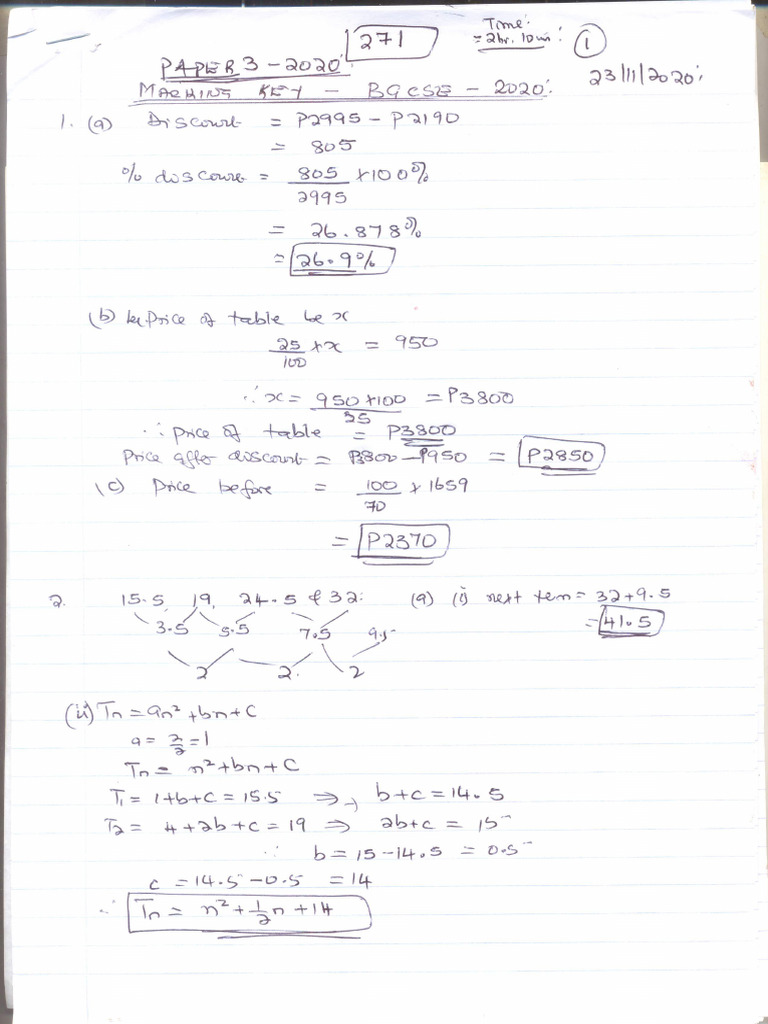 271
Time:
= 2hr. 10min:
1
PAPER 3 - 2020:
23/11/2020:
MACHING KEY - BGCSE - 2020:
1. (a) Discount = P2995 - P2190
= 805
% discount = 805/2995 × 100%
= 26.878%
= 26.9%
(b) let Price of table be x
25/100 × x = 950
∴ x = 950×100/25 = P3800
∴ Price of table = P3800
Price after discount = P3800 - P950 = P2850
(c) Price before = 100/70 × 1659
= P2370
2. 15.5, 19, 24.5 & 32: (a) (i) next term = 32+9.5
3.5 5.5 7.5 9.5 = 41.5
2 2. 2
(ii) Tn = an² + bn + c
a = 2/2 = 1
Tn = n² + bn + c
T1 = 1+b+c = 15.5 ⇒ b+c = 14.5
T2 = 4+2b+c = 19 ⇒ 2b+c = 15
∴ b = 15-14.5 = 0.5
c = 14.5-0.5 = 14
∴ Tn = n² + 1/2 n + 14